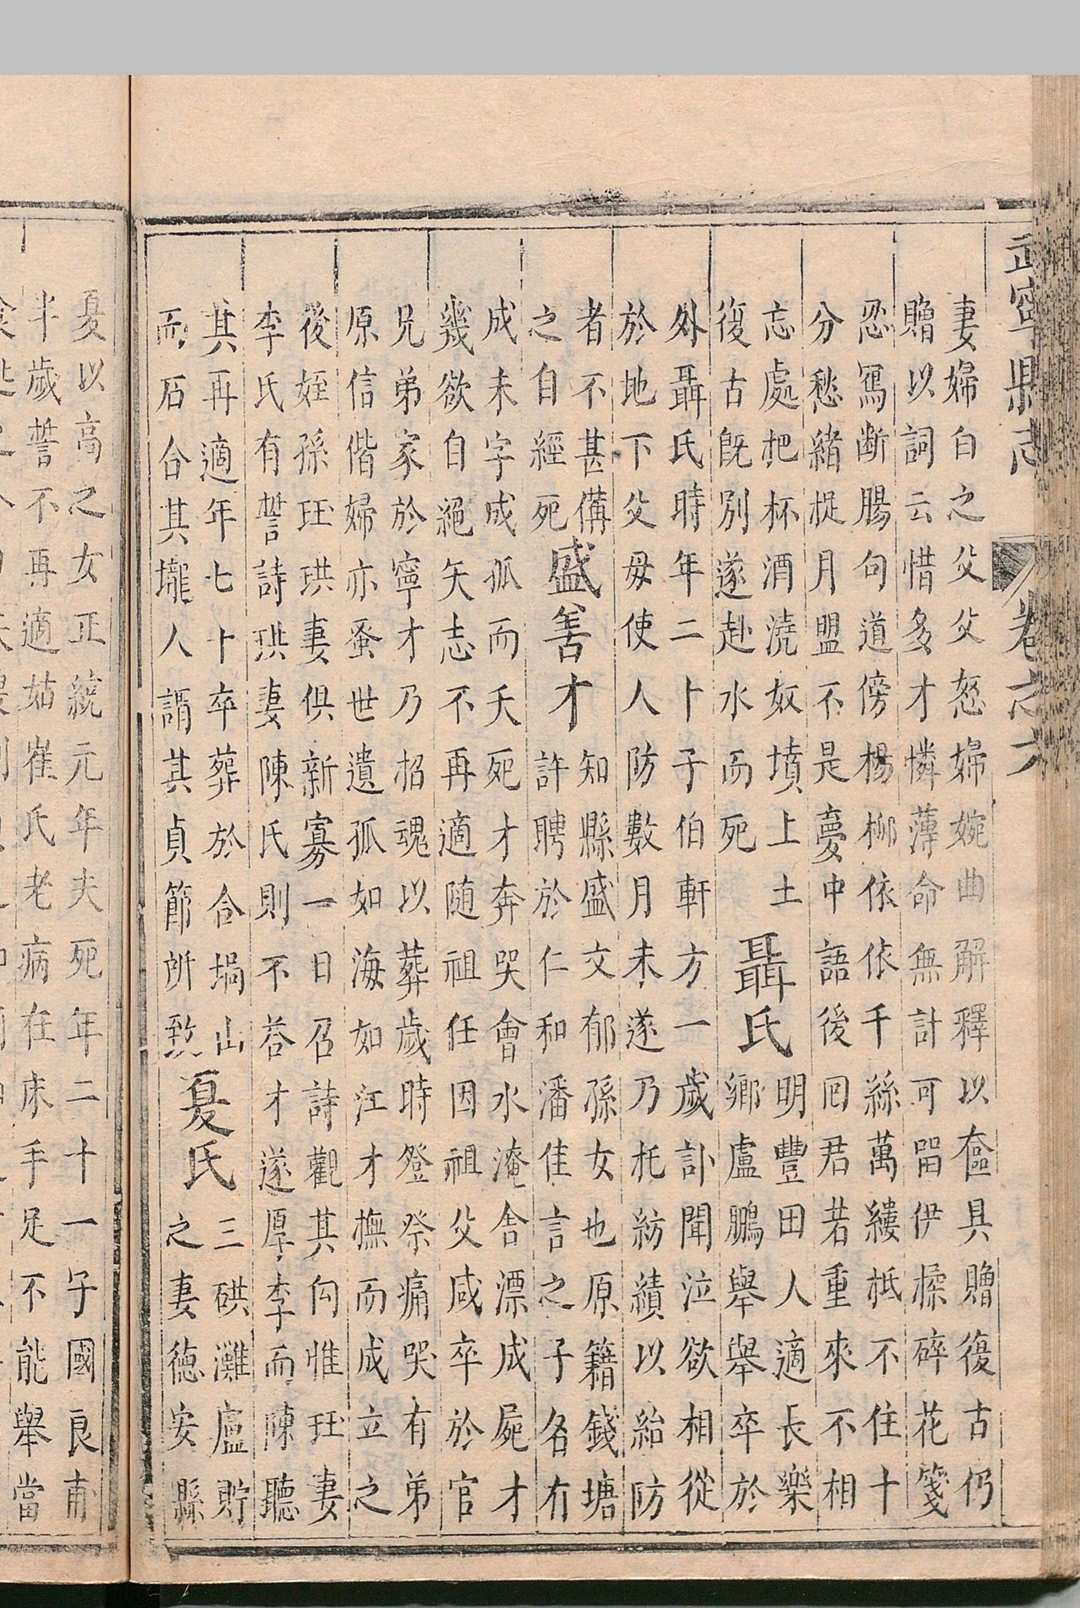 武寧縣志 卷之六
妻婦白之父父怒婦婉曲解釋以奩具贈復古仍
贈以詞云惜多才憐薄命無計可留伊揉碎花箋
忍寫斷腸句道傍楊柳依依千絲萬縷柢不住十
分愁緒捉月盟不是夢中語後回君若重來不相
忘處把杯酒澆奴墳上土
復古旣別遂赴水而死
聶氏
明豐田人適長樂
鄉盧鵬舉舉卒於
外聶氏時年二十子伯軒方一歲訃聞泣欲相從
於地下父毋使人防數月未遂乃托紡績以紿防
者不甚備
之自經死
盛善才
知縣盛文郁孫女也原籍錢塘
許聘於仁和潘佳言之子名有
成未字成孤而夭死才奔哭會水淹舍漂成屍才
幾欲自絕矢志不再適随祖任因祖父咸卒於官
兄弟家於寧才乃招魂以葬歲時登祭痛哭有弟
原信偕婦亦蚤世遺孤如海如江才撫而成立之
後姪孫珏珙妻俱新寡一日召詩觀其向惟珏妻
李氏有誓詩珙妻陳氏則不荅才遂厚李而陳聽
其再適年七十卒葬於合堝山
而石合其壠人謂其貞節所致
夏氏
三硔灘盧貯
之妻德安縣
夏以高之女正統元年夫死年二十一子國良甫
半歲誓不再適姑崔氏老病在床手足不能舉當